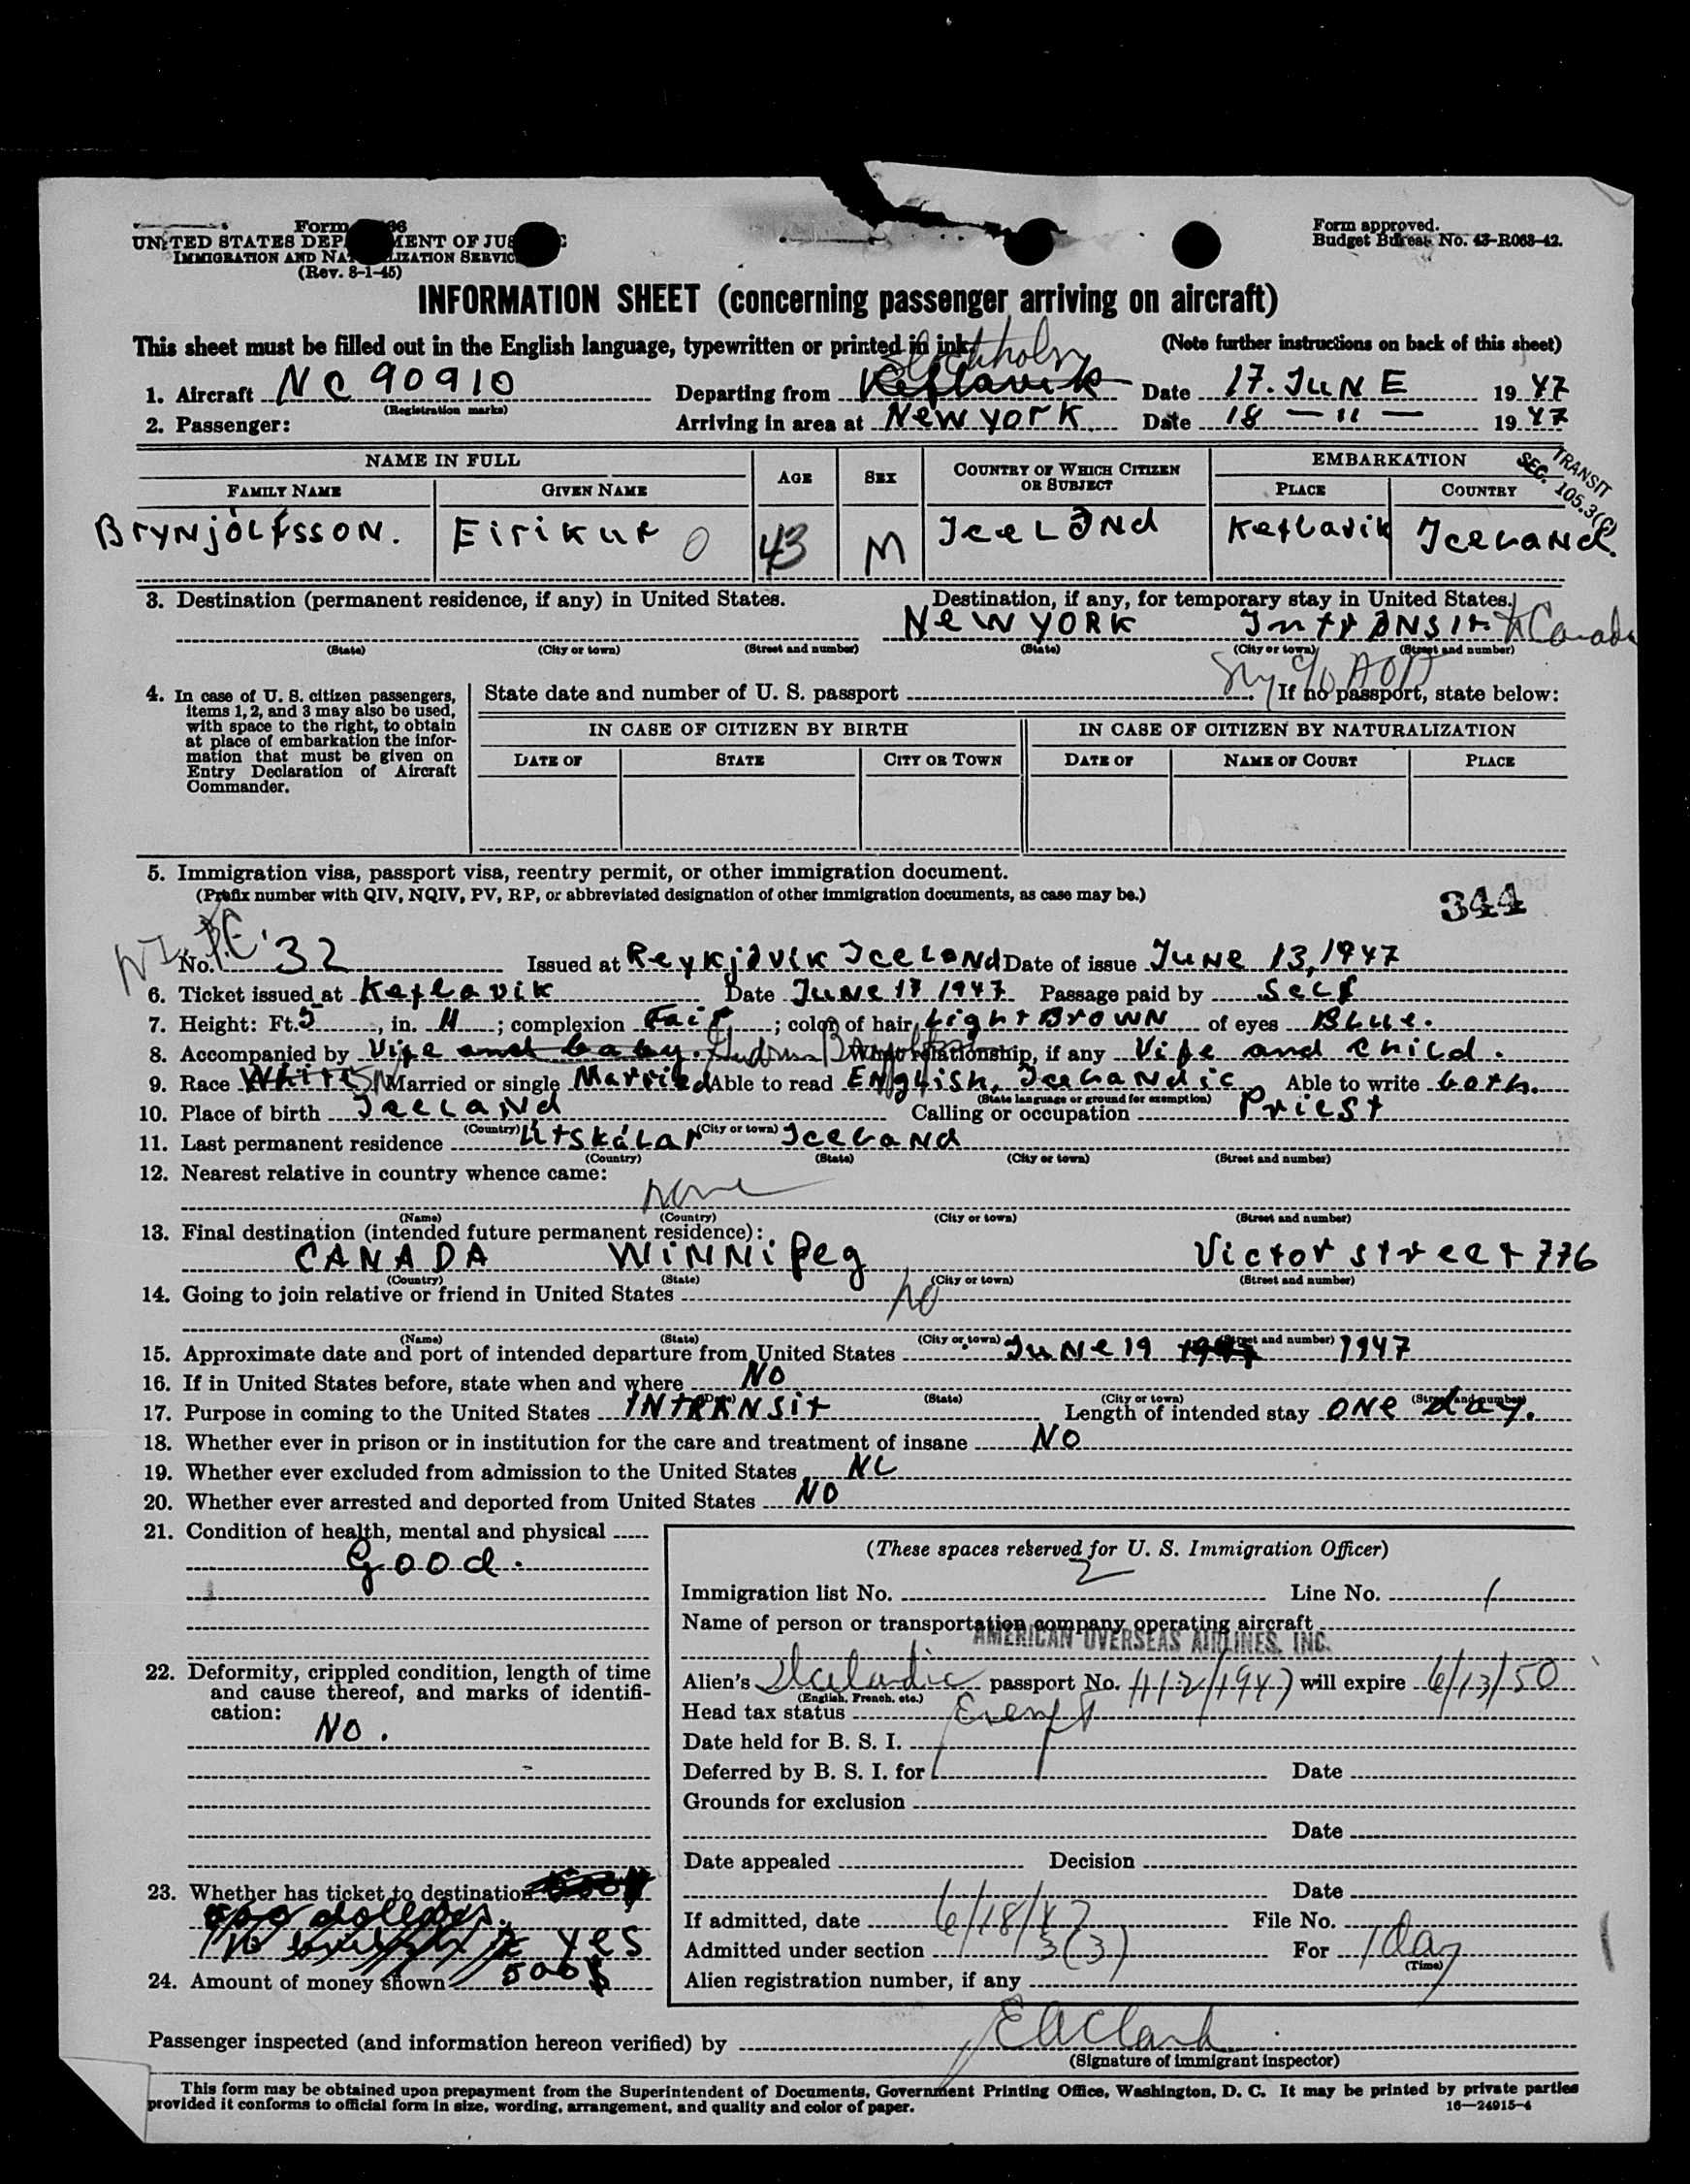 Form 66
UNITED STATES DEP MENT OF JUS
IMMIGRATION AND NAT LIZATION SERVIC
(Rev. 8-1-45)
Form approved.
Budget Bureau No. 43-R063-42.
INFORMATION SHEET (concerning passenger arriving on aircraft)
This sheet must be filled out in the English language, typewritten or printed in ink. (Note further instructions on back of this sheet)
Stockholm
1. Aircraft NC 90910 Departing from Keflavik Date 17. JUNE 1947
(Registration marks)
2. Passenger: Arriving in area at New york Date 18 — 11 — 1947
TRANSIT
SEC. 105.3(c)
NAME IN FULL AGE SEX COUNTRY OF WHICH CITIZEN OR SUBJECT EMBARKATION
FAMILY NAME GIVEN NAME PLACE COUNTRY
Brynjólfsson. Eirikur 0 43 M Iceland Keflavik Iceland.
3. Destination (permanent residence, if any) in United States. Destination, if any, for temporary stay in United States.
New YORK Intransit to Canada
(State) (City or town) (Street and number) (State) (City or town) (Street and number)
c/o AOA
4. In case of U. S. citizen passengers, items 1, 2, and 3 may also be used, with space to the right, to obtain at place of embarkation the information that must be given on Entry Declaration of Aircraft Commander.
State date and number of U. S. passport If no passport, state below:
IN CASE OF CITIZEN BY BIRTH IN CASE OF CITIZEN BY NATURALIZATION
DATE OF STATE CITY OR TOWN DATE OF NAME OF COURT PLACE
5. Immigration visa, passport visa, reentry permit, or other immigration document.
(Prefix number with QIV, NQIV, PV, RP, or abbreviated designation of other immigration documents, as case may be.)
344
No. 32 Issued at Reykjavik Iceland Date of issue June 13, 1947
6. Ticket issued at Keflavik Date June 17 1947 Passage paid by Self
7. Height: Ft. 5, in. 11; complexion Fair; color of hair Light Brown of eyes Blue.
8. Accompanied by Vife and baby. What relationship, if any Vife and child.
9. Race White Married or single Married Able to read English, Icelandic Able to write both.
(State language or ground for exemption)
10. Place of birth Iceland Calling or occupation Priest
(Country) (City or town)
11. Last permanent residence Útskálar Iceland
(Country) (State) (City or town) (Street and number)
12. Nearest relative in country whence came:
none
(Name) (Country) (City or town) (Street and number)
13. Final destination (intended future permanent residence):
CANADA Winnipeg Victor street 776
(Country) (State) (City or town) (Street and number)
14. Going to join relative or friend in United States no
(Name) (State) (City or town) (Street and number)
15. Approximate date and port of intended departure from United States June 19 1947 1947
16. If in United States before, state when and where NO
(Date) (State) (City or town) (Street and number)
17. Purpose in coming to the United States INTRANSIT Length of intended stay one day.
18. Whether ever in prison or in institution for the care and treatment of insane NO
19. Whether ever excluded from admission to the United States NO
20. Whether ever arrested and deported from United States NO
21. Condition of health, mental and physical
Good.
22. Deformity, crippled condition, length of time and cause thereof, and marks of identification:
NO.
23. Whether has ticket to destination
dollars.
yes
24. Amount of money shown 500$
(These spaces reserved for U. S. Immigration Officer)
Immigration list No. 2 Line No. 1
Name of person or transportation company operating aircraft
AMERICAN OVERSEAS AIRLINES, INC.
Alien's Icelandic passport No. 112/1947 will expire 6/13/50
(English, French, etc.)
Head tax status Exempt
Date held for B. S. I.
Deferred by B. S. I. for Date
Grounds for exclusion
Date
Date appealed Decision
Date
If admitted, date 6/18/47 File No.
Admitted under section 3(3) For 1 day
(Time)
Alien registration number, if any
Passenger inspected (and information hereon verified) by EAClark
(Signature of immigrant inspector)
This form may be obtained upon prepayment from the Superintendent of Documents, Government Printing Office, Washington, D. C. It may be printed by private parties
provided it conforms to official form in size, wording, arrangement, and quality and color of paper. 16—24915-4